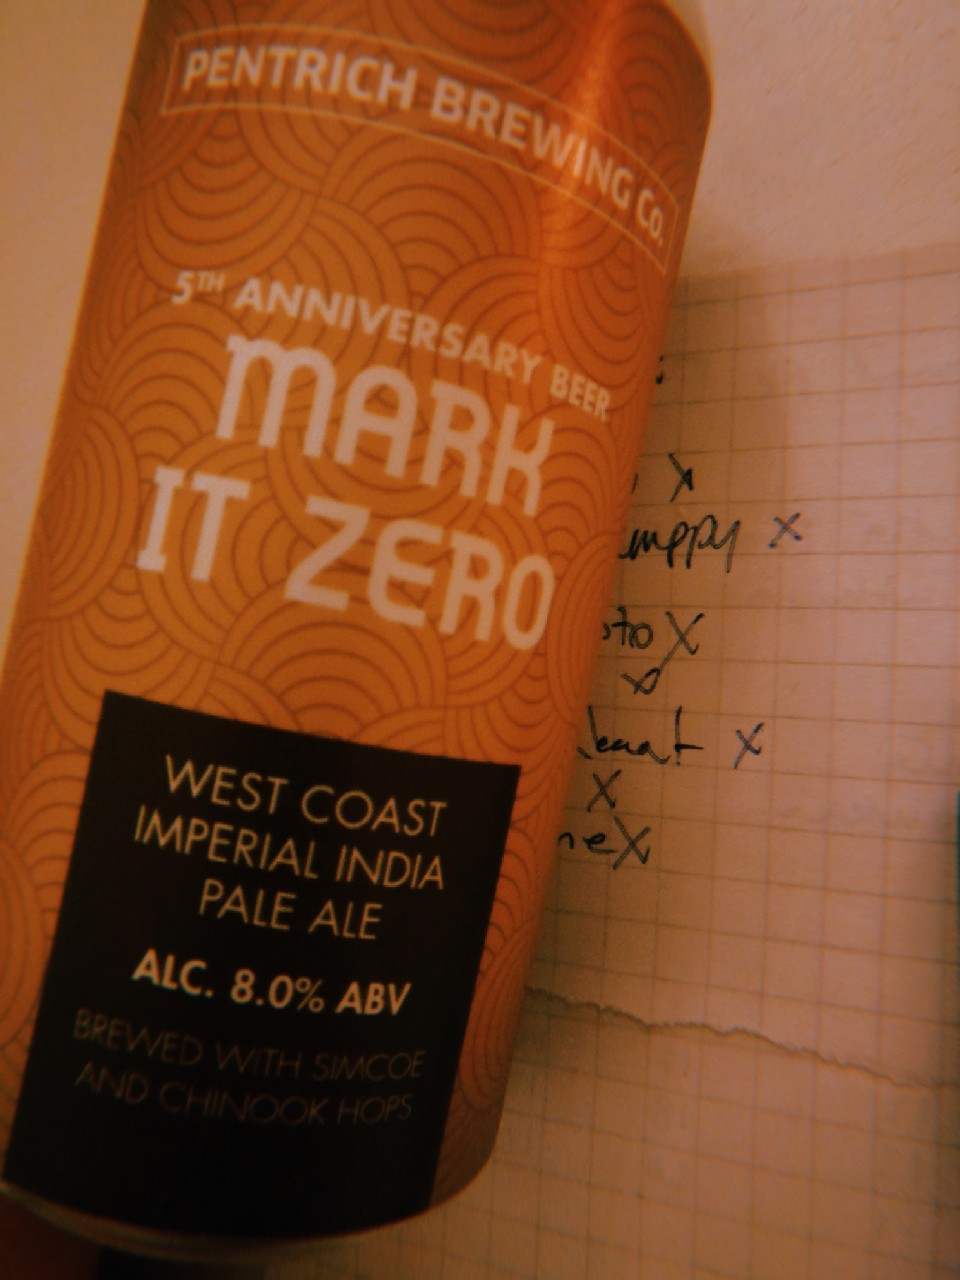 PENTRICH BREWING Co.
5TH ANNIVERSARY BEER
MARK
IT ZERO
WEST COAST
IMPERIAL INDIA
PALE ALE
ALC. 8.0% ABV
BREWED WITH SIMCOE
AND CHINOOK HOPS
X
X
X
X
X